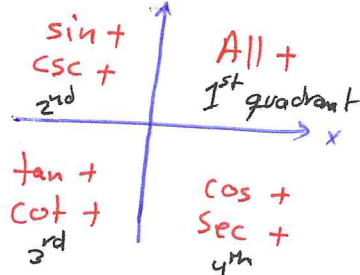 sin +
csc +
2nd
All +
1st quadrant
x
tan +
cot +
3rd
cos +
sec +
4th